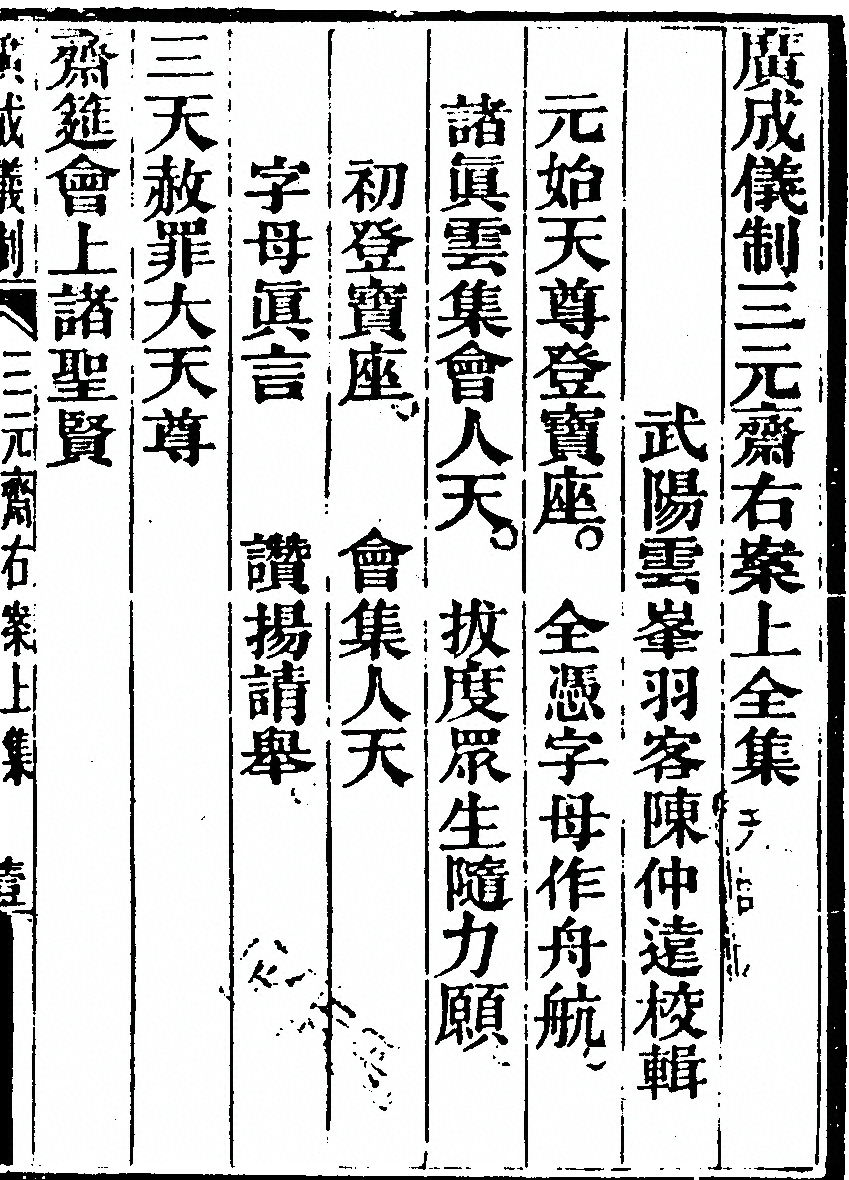 廣成儀制三元齋右案上全集
武陽雲峯羽客陳仲遠校輯
元始天尊登寶座。 全憑字母作舟航
諸眞雲集會人天。 拔度眾生隨力願
初登寶座 會集人天
字母眞言 讚揚請舉
三天赦罪大天尊
齋筵會上諸聖賢
廣成儀制 三元齋右案上集 壹